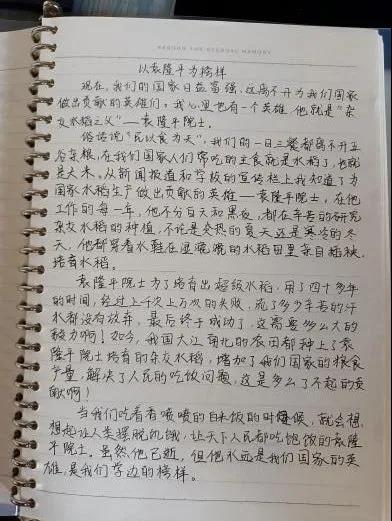 以袁隆平为榜样
现在,我们的国家日益富强,这离不开为我们国家
做出贡献的英雄们,我心里也有一个英雄,他就是“杂
交水稻之父”——袁隆平院士。
俗话说“民以食为天”,我们的一日三餐都离不开五
谷杂粮,在我们国家人们常吃的主食就是水稻了,也就
是大米。从新闻报道和学校的宣传栏上我知道了为
国家水稻生产做出贡献的英雄——袁隆平院士,在他
工作的每一年,他不分白天和黑夜,都在辛苦的研究
杂交水稻的种植,不论是炎热的夏天还是寒冷的冬
天,他都穿着水鞋在湿漉漉的水稻田里亲自插秧,
培育水稻。
袁隆平院士为了培育出超级水稻,用了四十多年
的时间,经过上千次上万次的失败,流了多少辛苦的汗
水都没有放弃,最后终于成功了,这需要多么大的
毅力啊!如今,我国大江南北的农田都种上了袁
隆平院士培育的杂交水稻,增加了我们国家的粮食
产量,解决了人民的吃饭问题,这是多么了不起的贡
献啊!
当我们吃着香喷喷的白米饭的时候,就会想
想起让人类摆脱饥饿,让天下人民都吃饱饭的袁隆
平院士。虽然他已逝,但他永远是我们国家的英
雄,是我们学边的榜样。